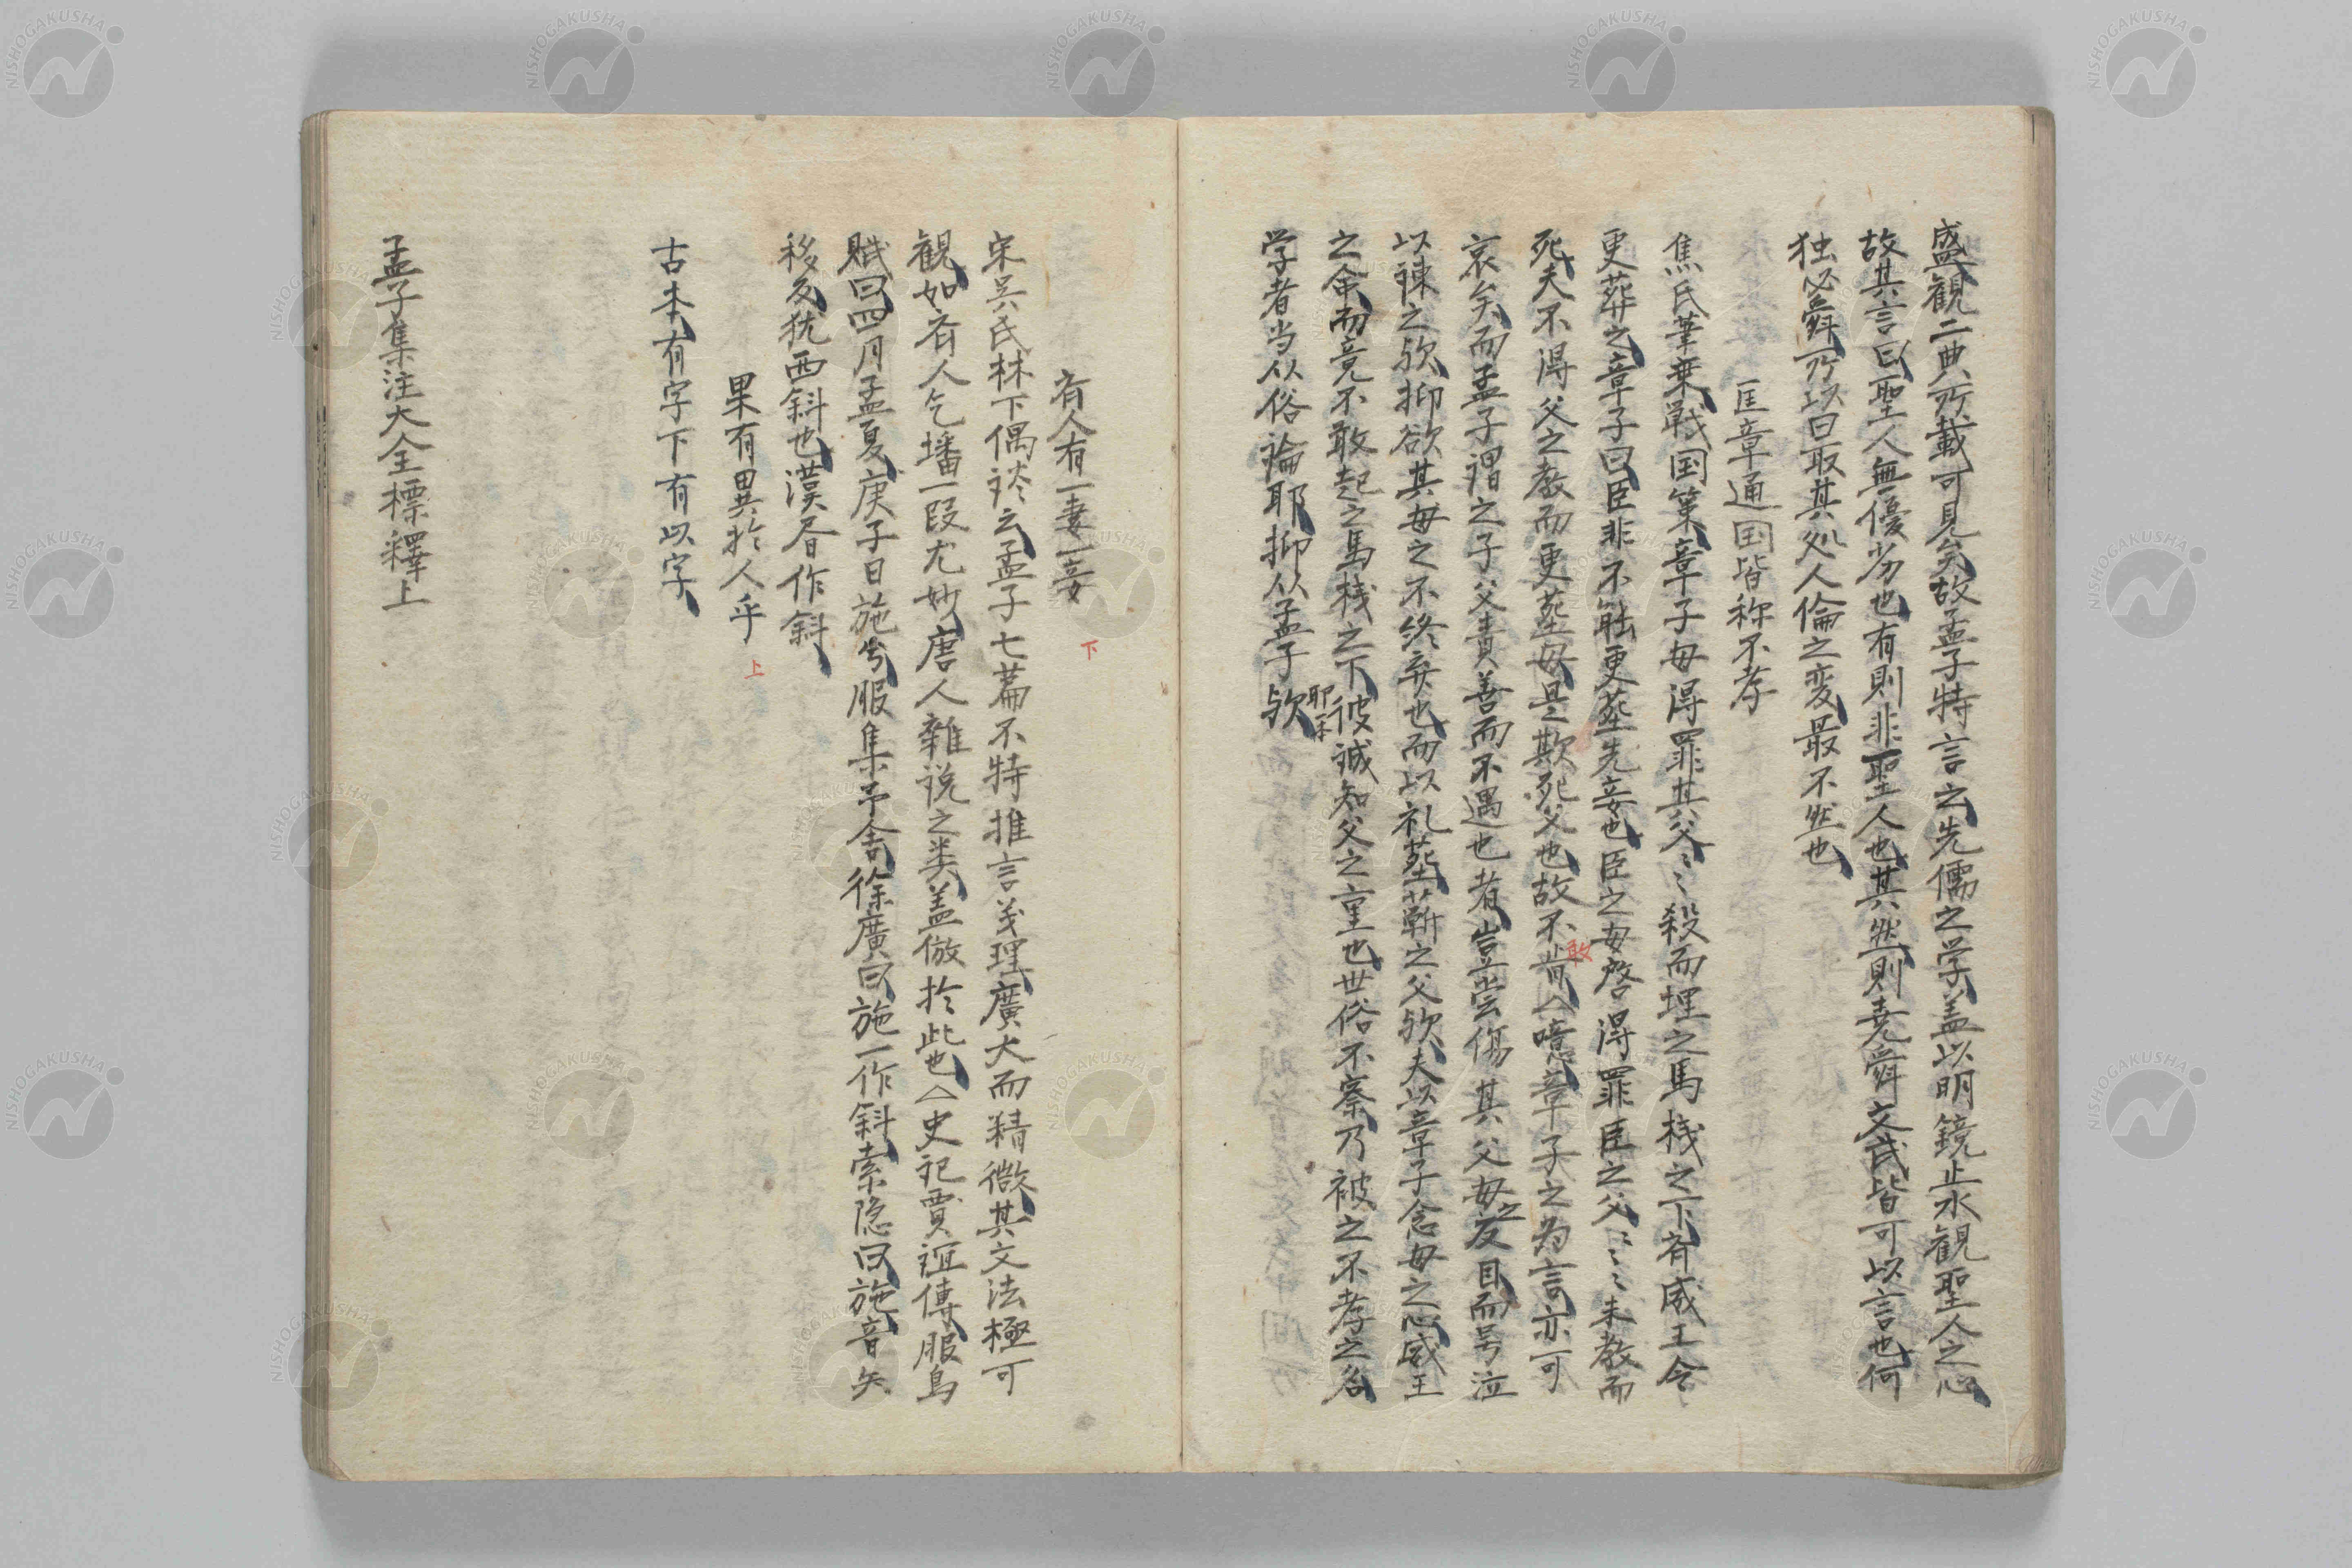 盛観二典所載可見矣故孟子特言之先儒之学盖以明鏡止水観聖人之心
故其言曰聖人無優劣也有則非聖人也其然則堯舜文武皆可以言也何
独必舜所以曰取其処人倫之変最不然也
匡章通国皆称不孝
焦氏筆乗戦国策章子母得罪其父〻殺而埋之馬桟之下斉威王令
更葬之章子曰臣非不能更葬先妾也臣之母啓得罪臣之父〻〻未教而
死夫不得父之教而更葬母是欺死父也故不肯△噫章子之為言亦可
敢
哀矣而孟子謂之子父責善而不遇也者豈嘗傷其父母之反目而号泣
以諌之欤抑欲其母之不終弃也而以礼葬蘄之父欤夫以章子念母之心威王
之命而竟不敢起之馬桟之下彼誠知父之重也世俗不察乃被之不孝之名
学者当从俗論耶抑从孟子欤
斉人有一妻一妾
下
宋呉氏林下偶談云孟子七篇不特推言義理廣大而精微其文法極可
観如斉人乞墦一段尤妙唐人雜説之类盖倣於此也△史記賈誼傳服鳥
賦曰四月孟夏庚子日施兮服集予舎徐廣曰施一作斜索隐曰施音矢
移反犹西斜也漢書作斜
果有異於人乎
上
古本有字下有以字
孟子集注大全標釋上